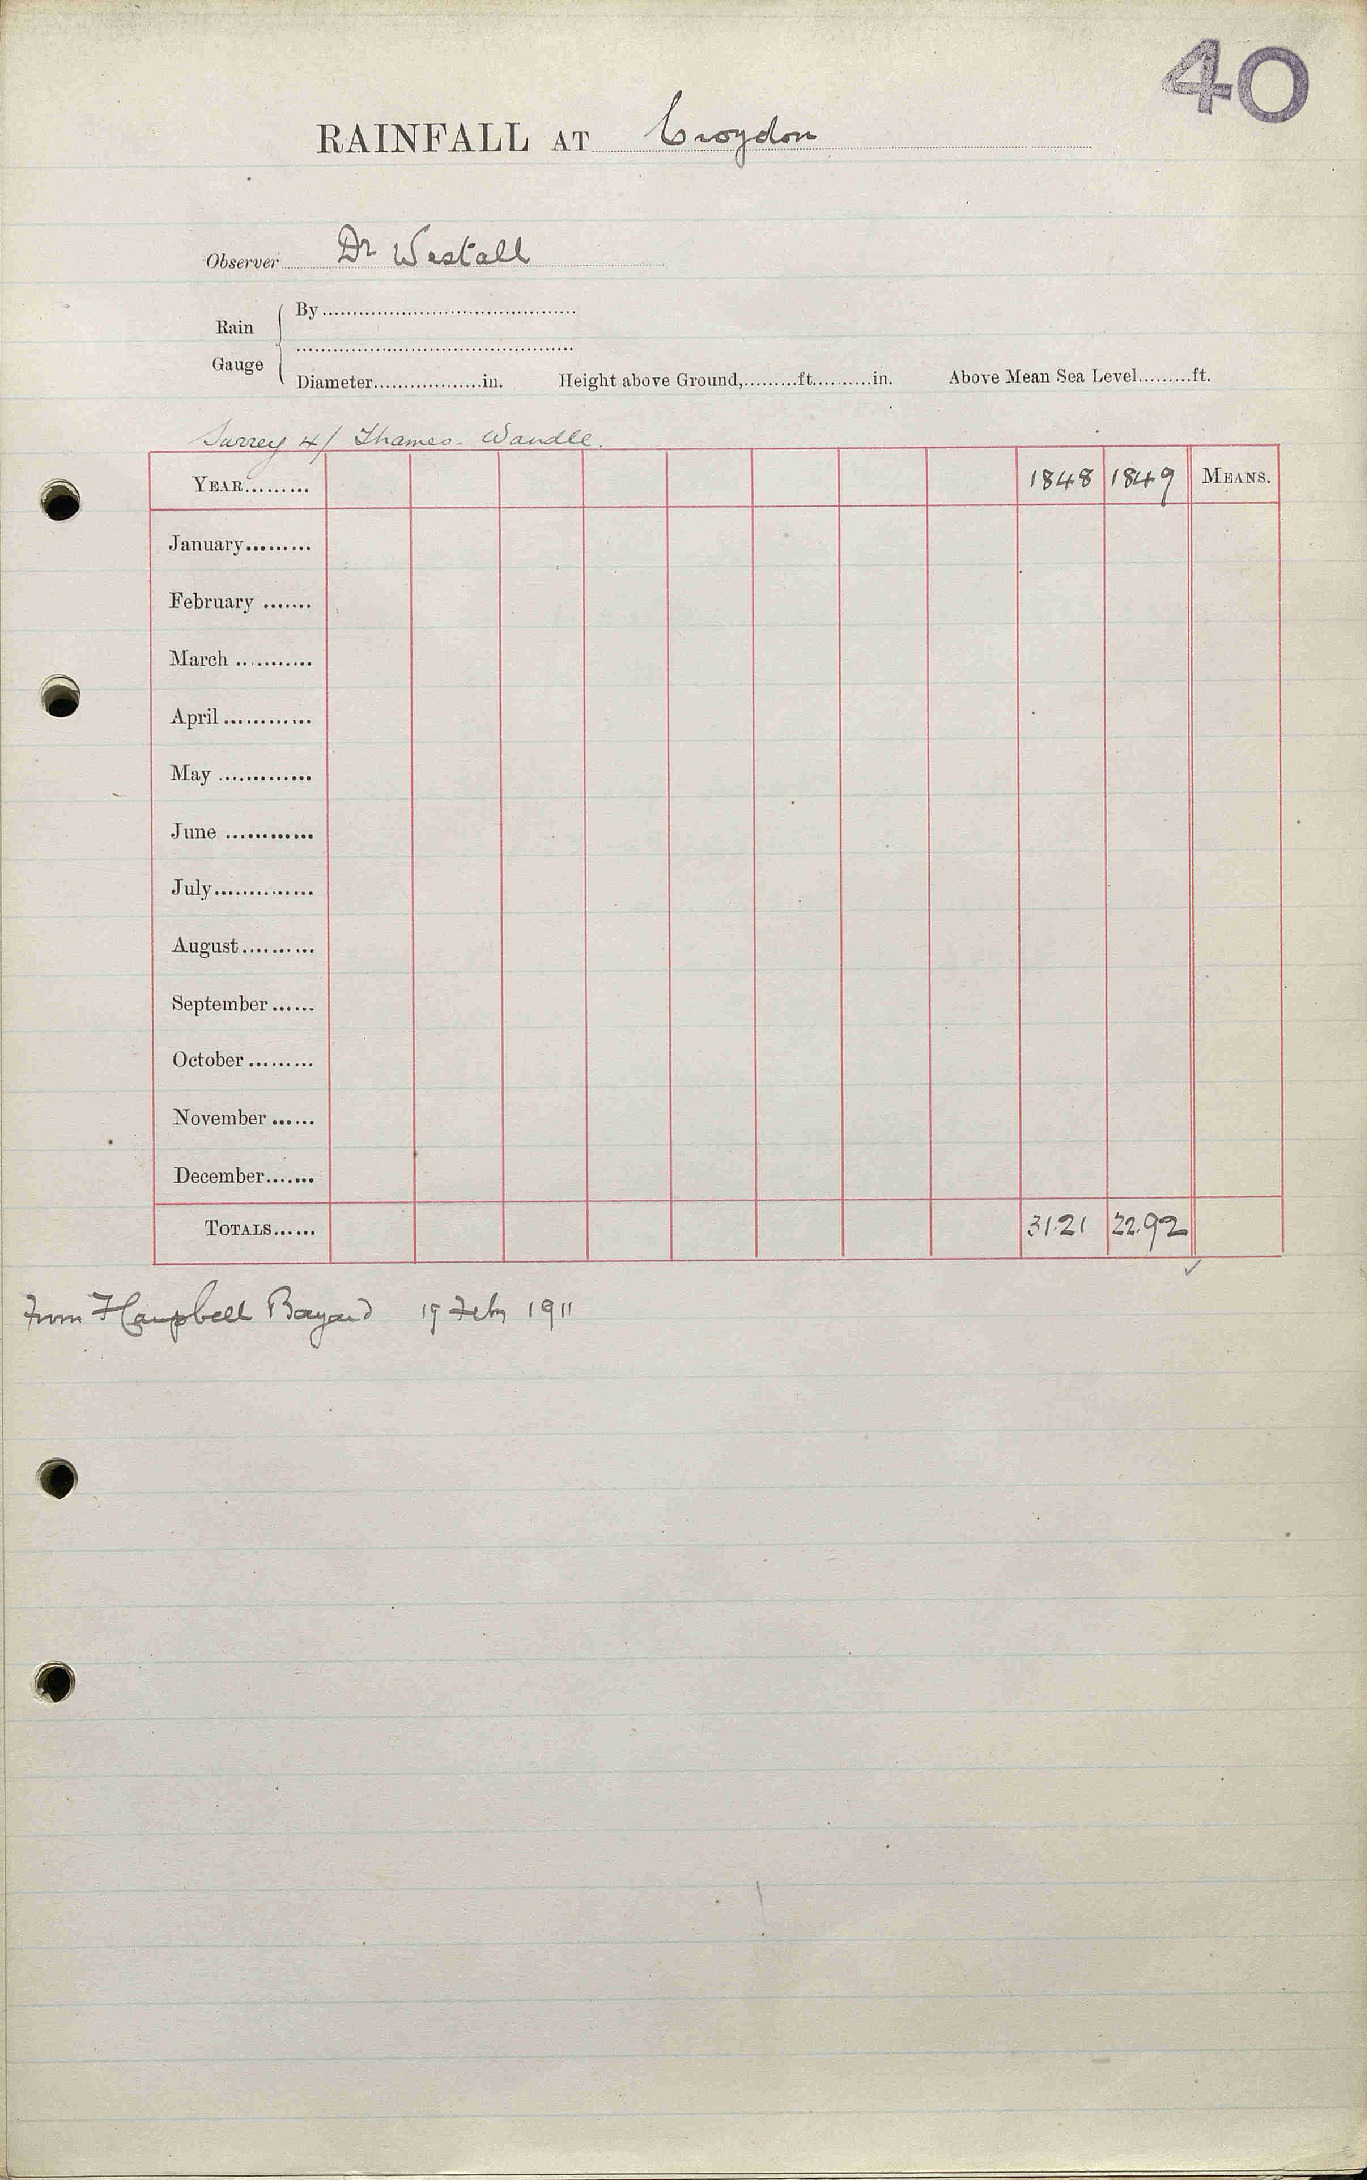 40
RAINFALL AT Croydon
Observer Dr Westall
Rain Gauge
By
Diameter in. Height above Ground, ft. in. Above Mean Sea Level ft.
Surrey 4/ Thames. Wandle.
YEAR 1848 1849 MEANS.
January
February
March
April
May
June
July
August
September
October
November
December
TOTALS 31.21 22.92
from F Campbell Bayard 19 Feby 1911